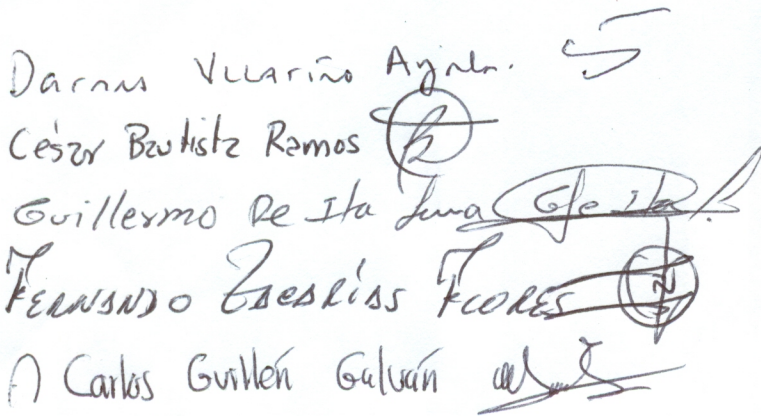 Darnes Vilariño Ayala.
César Bautista Ramos
Guillermo De Ita Luna
Fernando Zacarías Flores
A Carlos Guillén Galván